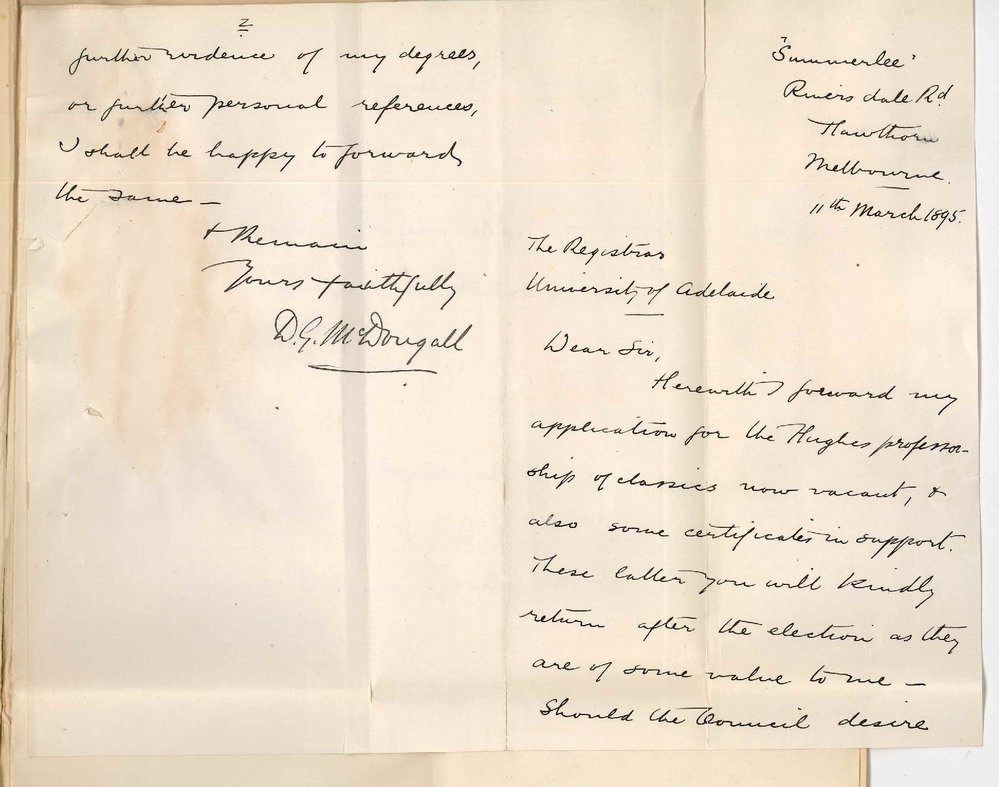 "Summerlee"
Riversdale Rd.
Hawthorn
Melbourne.
11th March 1895.
The Registrar
University of Adelaide
Dear Sir,
Herewith I forward my
application for the Hughes professor-
ship of classics now vacant, &
also some certificates in support.
These latter you will kindly
return after the election as they
are of some value to me —
Should the Council desire
2
further evidence of my degrees,
or further personal references,
I shall be happy to forward
the same —
I Remain
Yours faithfully
D. G. McDougall